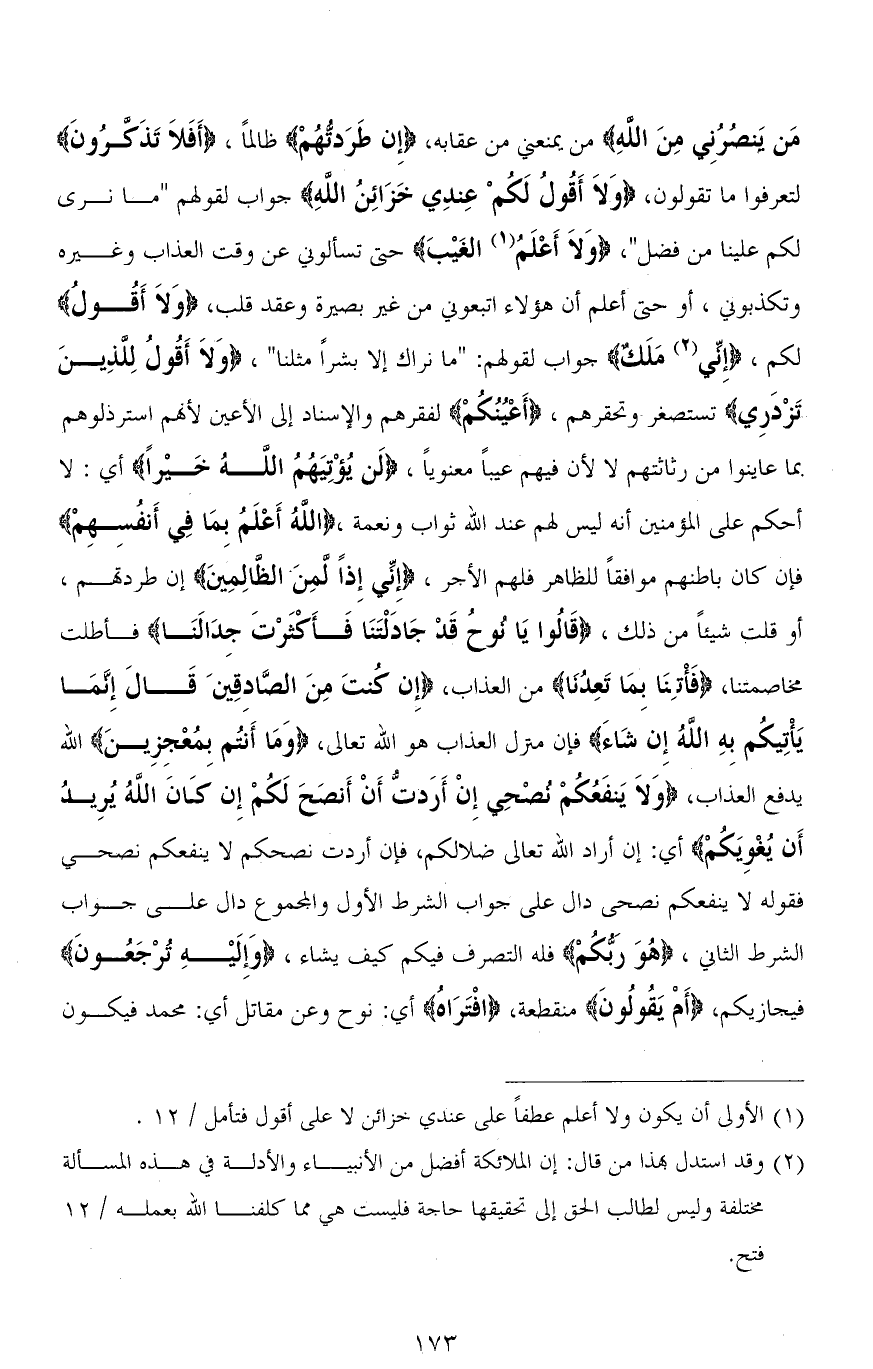 مَن يَنصُرُنِي مِنَ اللَّهِ﴾ من يمنعني من عقابه، ﴿إِن طَرَدتُّهُمْ﴾ ظالماً ، ﴿أَفَلاَ تَذَكَّرُونَ﴾
لتعرفوا ما تقولون، ﴿وَلاَ أَقُولُ لَكُمْ عِندِي خَزَائِنُ اللَّهِ﴾ جواب لقولهم "ما نرى
لكم علينا من فضل"، ﴿وَلاَ أَعْلَمُ(١) الغَيْبَ﴾ حتى تسألوني عن وقت العذاب وغيره
وتكذبوني ، أو حتى أعلم أن هؤلاء اتبعوني من غير بصيرة وعقد قلب، ﴿وَلاَ أَقُولُ﴾
لكم ، ﴿إِنِّي(٢) مَلَكٌ﴾ جواب لقولهم: "ما نراك إلا بشراً مثلنا" ، ﴿وَلاَ أَقُولُ لِلَّذِينَ
تَزْدَرِي﴾ تستصغر وتحقرهم ، ﴿أَعْيُنُكُمْ﴾ لفقرهم والإسناد إلى الأعين لأنهم استرذلوهم
بما عاينوا من رثاثتهم لا لأن فيهم عيباً معنوياً ، ﴿لَن يُؤْتِيَهُمُ اللَّهُ خَيْراً﴾ أي : لا
أحكم على المؤمنين أنه ليس لهم عند الله ثواب ونعمة ،﴿اللَّهُ أَعْلَمُ بِمَا فِي أَنفُسِهِمْ﴾
فإن كان باطنهم موافقاً للظاهر فلهم الأجر ، ﴿إِنِّي إِذاً لَّمِنَ الظَّالِمِينَ﴾ إن طردتهم ،
أو قلت شيئاً من ذلك ، ﴿قَالُوا يَا نُوحُ قَدْ جَادَلْتَنَا فَأَكْثَرْتَ جِدَالَنَا﴾ فأطلت
مخاصمتنا، ﴿فَأْتِنَا بِمَا تَعِدُنَا﴾ من العذاب، ﴿إِن كُنتَ مِنَ الصَّادِقِينَ قَالَ إِنَّمَا
يَأْتِيكُم بِهِ اللَّهُ إِن شَاءَ﴾ فإن منزل العذاب هو الله تعالى، ﴿وَمَا أَنتُم بِمُعْجِزِينَ﴾ الله
يدفع العذاب، ﴿وَلاَ يَنفَعُكُمْ نُصْحِي إِنْ أَرَدتُّ أَنْ أَنصَحَ لَكُمْ إِن كَانَ اللَّهُ يُرِيدُ
أَن يُغْوِيَكُمْ﴾ أي: إن أراد الله تعالى ضلالكم، فإن أردت نصحكم لا ينفعكم نصحي
فقوله لا ينفعكم نصحى دال على جواب الشرط الأول والمجموع دال على جواب
الشرط الثاني ، ﴿هُوَ رَبُّكُمْ﴾ فله التصرف فيكم كيف يشاء ، ﴿وَإِلَيْهِ تُرْجَعُونَ﴾
فيجازيكم، ﴿أَمْ يَقُولُونَ﴾ منقطعة، ﴿افْتَرَاهُ﴾ أي: نوح وعن مقاتل أي: محمد فيكون
(١) الأولى أن يكون ولا أعلم عطفاً على عندي خزائن لا على أقول فتأمل / ١٢ .
(٢) وقد استدل بهذا من قال: إن الملائكة أفضل من الأنبياء والأدلة في هذه المسألة
مختلفة وليس لطالب الحق إلى تحقيقها حاجة فليست هي مما كلفنا الله بعمله / ١٢
فتح.
١٧٣